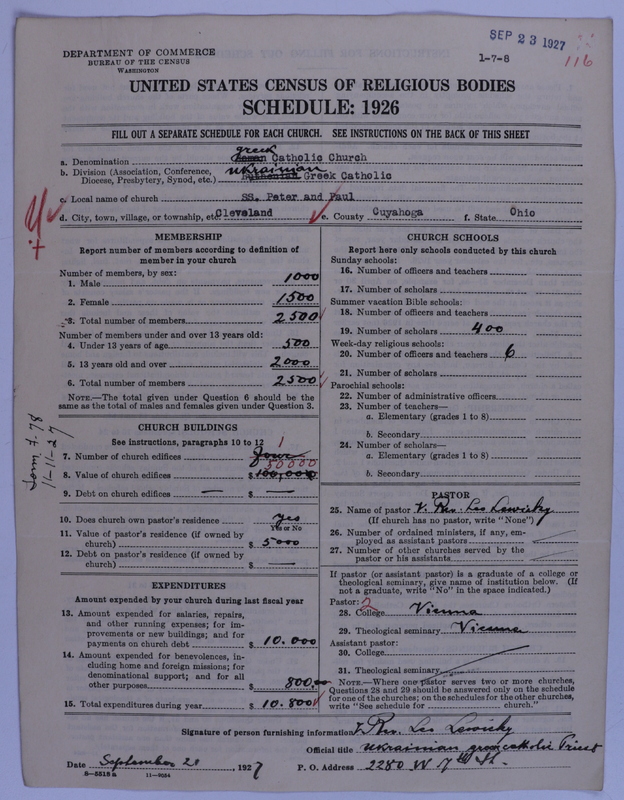 SEP 23 1927
DEPARTMENT OF COMMERCE
BUREAU OF THE CENSUS
WASHINGTON
1-7-8
116
UNITED STATES CENSUS OF RELIGIOUS BODIES
SCHEDULE: 1926
FILL OUT A SEPARATE SCHEDULE FOR EACH CHURCH. SEE INSTRUCTIONS ON THE BACK OF THIS SHEET
greek
a. Denomination Roman Catholic Church
ukrainian
b. Division (Association, Conference, Diocese, Presbytery, Synod, etc.) Ruthenian Greek Catholic
c. Local name of church SS. Peter and Paul
d. City, town, village, or township, etc. Cleveland e. County Cuyahoga f. State Ohio
MEMBERSHIP
Report number of members according to definition of
member in your church
Number of members, by sex:
1. Male 1000
2. Female 1500
3. Total number of members 2500
Number of members under and over 13 years old:
4. Under 13 years of age 500
5. 13 years old and over 2000
6. Total number of members 2500
NOTE.—The total given under Question 6 should be the
same as the total of males and females given under Question 3.
Form F. 78
11-11-27
CHURCH BUILDINGS
See instructions, paragraphs 10 to 12
1
7. Number of church edifices four
50000
8. Value of church edifices $ 100,000
9. Debt on church edifices — $ —
10. Does church own pastor's residence yes
Yes or No
11. Value of pastor's residence (if owned by
church) $ 5000
12. Debt on pastor's residence (if owned by
church) $ —
EXPENDITURES
Amount expended by your church during last fiscal year
13. Amount expended for salaries, repairs,
and other running expenses; for im-
provements or new buildings; and for
payments on church debt $ 10.000
14. Amount expended for benevolences, in-
cluding home and foreign missions; for
denominational support; and for all
other purposes $ 800.00
15. Total expenditures during year $ 10.800
CHURCH SCHOOLS
Report here only schools conducted by this church
Sunday schools:
16. Number of officers and teachers
17. Number of scholars
Summer vacation Bible schools:
18. Number of officers and teachers
19. Number of scholars 400
Week-day religious schools:
20. Number of officers and teachers 6
21. Number of scholars
Parochial schools:
22. Number of administrative officers
23. Number of teachers—
a. Elementary (grades 1 to 8)
b. Secondary
24. Number of scholars—
a. Elementary (grades 1 to 8)
b. Secondary
PASTOR
25. Name of pastor V. Rev. Leo Lewicky
(If church has no pastor, write "None")
26. Number of ordained ministers, if any, em-
ployed as assistant pastors
27. Number of other churches served by the
pastor or his assistants
If pastor (or assistant pastor) is a graduate of a college or
theological seminary, give name of institution below. (If
not a graduate, write "No" in the space indicated.)
Pastor: 2
28. College Vienna
29. Theological seminary Vienna
Assistant pastor:
30. College
31. Theological seminary
NOTE.—Where one pastor serves two or more churches,
Questions 28 and 29 should be answered only on the schedule
for one of the churches; on the schedules for the other churches,
write "See schedule for church."
Signature of person furnishing information V. Rev. Leo Lewicky
Official title ukrainian greek catholic Priest
Date September 21 , 1927 P. O. Address 2280 W 7th St.
8—5515a 11—9054